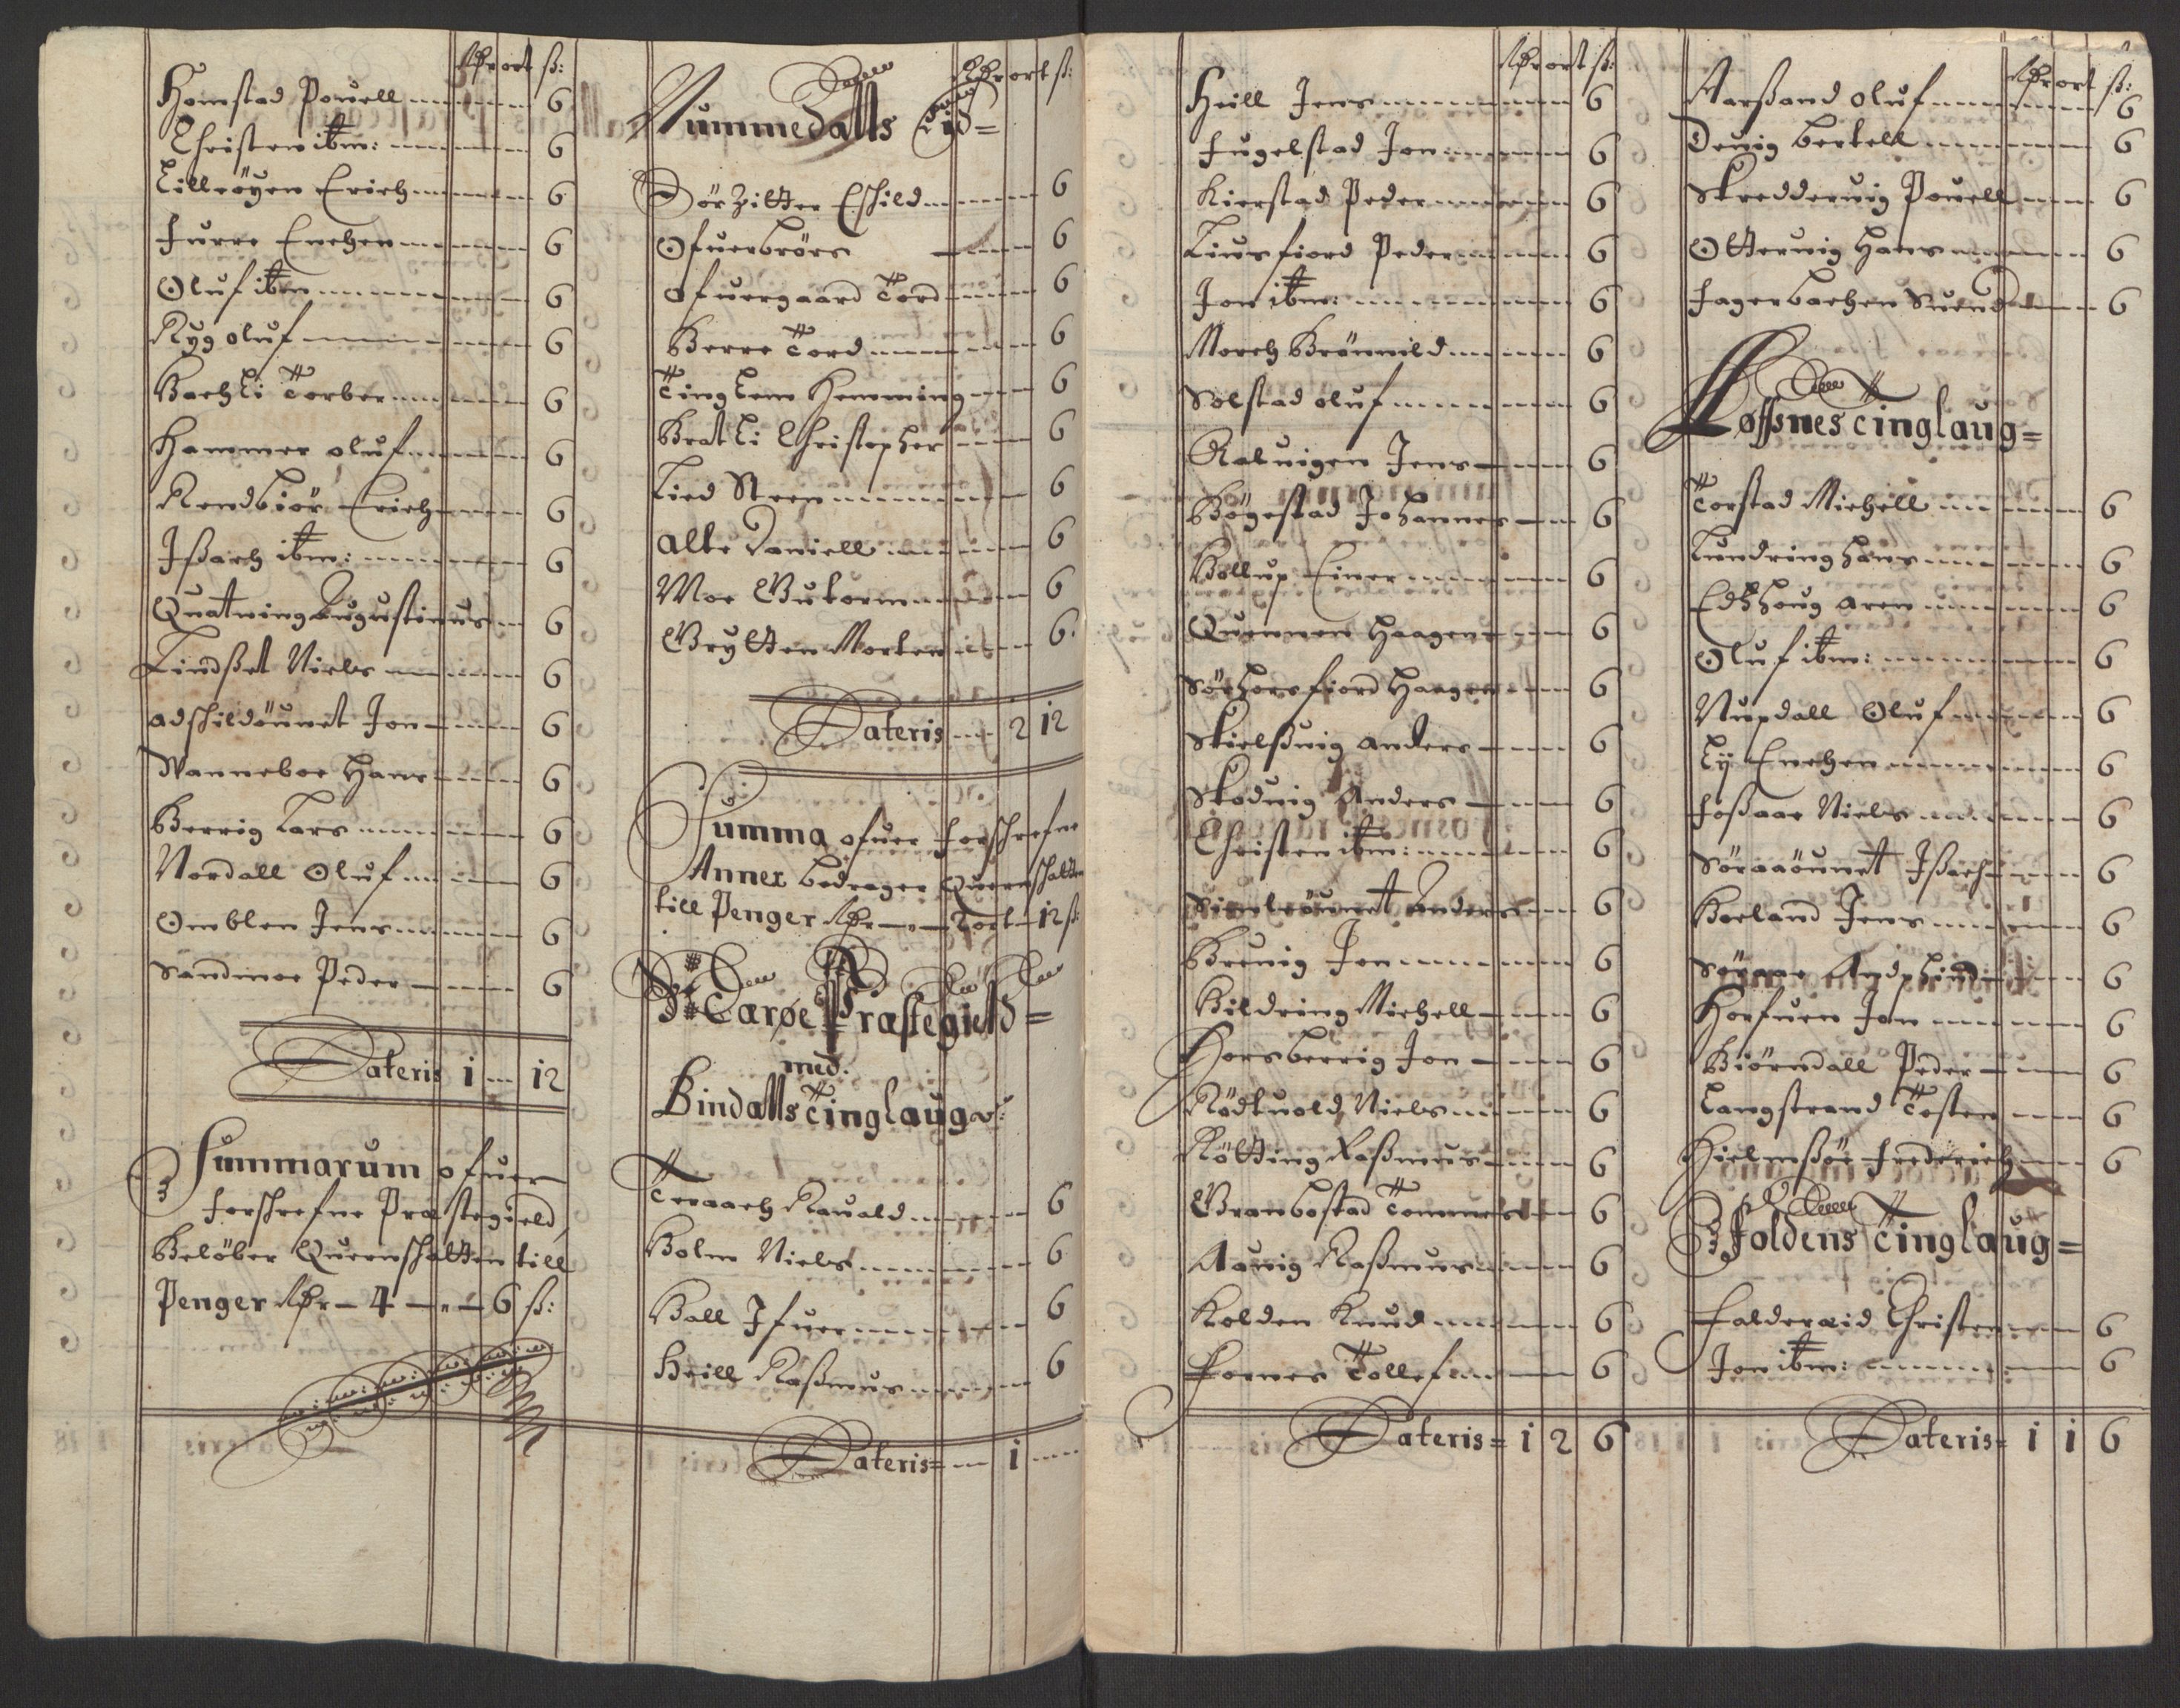 Rdr ort ß:
Homstad Pouell 6
Christen ibm: 6
Lillröyen Erich 6
Furre Enchen 6
Oluf ibm 6
Ryg oluf 6
Bachli Torber 6
Hammer oluf 6
Rendbiör Erich 6
Ißach ibm: 6
Quatning Augustinus 6
Lindßet Niels 6
adschildöunet Jon 6
Wanneboe Hans 6
Berrig Lars 6
Nordall Oluf 6
Omblen Jens 6
Sandmoe Peder 6
Lateris 1 12
Summarum ofuer
forschrefne Præstegield
Belöber Quernschatten till
Penger Rdr 4 6 ß:
Rdr ort ß:
Nummedalls Eid
Dörzitter Eschild 6
Ofuerbrörs 6
Ofuergaard Tord 6
Berre Tord 6
Tinglem Hemming 6
Bratli Christopher 6
Lied Steen 6
alte Daniell 6
Moe Gutorm 6
Grytten Morten 6
Lateris 2 12
Summa ofuer forschrefne
Annex bedrager Quernschatten
till Penger Rdr 2 ort 12 ß
Næröe Præstegield
med
Bindalls Tinglaug
Teraach Rauald 6
Bolm Niels 6
Ball Ifuer 6
Heill Raßmus 6
Lateris 1
Rdr ort ß:
Heill Jens 6
Fugelstad Jon 6
Kierstad Peder 6
Liusfiord Peder 6
Jon ibm: 6
Morch Brönnild 6
Solstad oluf 6
Kaluigen Jens 6
Bögestad Johannes 6
Bollup Einer 6
Quennen Haagen 6
Sörhorsfiord Haagen 6
Skielßuig Anders 6
Skoduig Anders 6
Christen ibm: 6
Simleöunet Anders 6
Breuig Jon 6
Kildring Michell 6
Horsberrig Jon 6
Rödtuold Niels 6
Rötting Raßmus 6
Granbostad Tommes 6
Aauig Raßmus 6
Kolden Knud 6
Fornes Tollef 6
Lateris 1 2 6
Rdr ort ß:
Aarßand oluf 6
Deuig bertell 6
Skredderuig Pouell 6
Otteruig Hans 6
Fagerbachen Suend 6
Foßnes Tinglaug
Torstad Michell 6
Lundring Hans 6
Edßhoug aren 6
Oluf ibm: 6
Nupdall Oluf 6
Ey Enchen 6
Foßaae Niels 6
Söraaöunet Ißach 6
Horland Jens 6
Söraae Andphind 6
Horfuen Jon 6
Biörndall Peder 6
Langstrand Tosten 6
Hielmßöe Frederich 6
Foldens Tinglaug
Faldereid Christen 6
Jon ibm: 6
Lateris 1 1 6